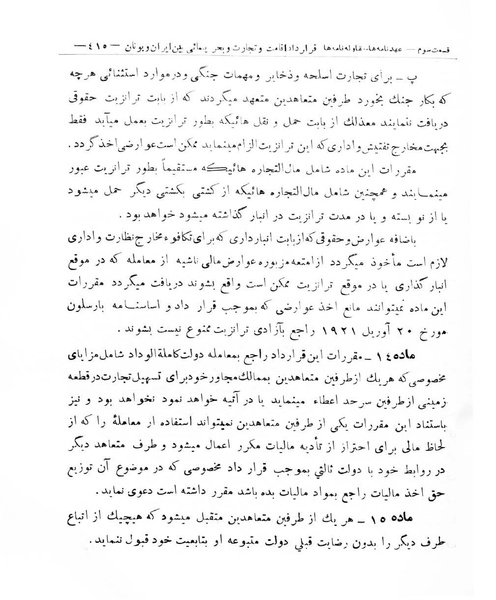 قسمت سوم — عهدنامه‌ها، مقاوله‌نامه‌ها قرارداد اقامت و تجارت و بحر پیمائی بین ایران و یونان — ٤١٥ —
پ ـ برای تجارت اسلحه و ذخایر و مهمات جنگی و در موارد استثنائی هرچه
که بکار جنك بخورد طرفین متعاهدین متعهد میگردند که از بابت ترانزیت حقوقی
دریافت ننمایند معذالك از بابت حمل و نقل هائیکه بطور ترانزیت بعمل میآید فقط
بجهت مخارج تفتیش و اداری که این ترانزیت الزام مینماید ممکن است عوارضی اخذ گردد.
مقررات این ماده شامل مال‌التجاره هائیکه مستقیماً بطور ترانزیت عبور
مینمایند و همچنین شامل مال‌التجاره هائیکه از کشتی بکشتی دیگر حمل میشود
یا از نو بسته و یا در مدت ترانزیت در انبار گذاشته میشود خواهد بود .
باضافه عوارض و حقوقی که از بابت انبارداری که برای تکافوء مخارج نظارت و اداری
لازم است مأخوذ میگردد از امتعه مزبوره عوارض مالی ناشیه از معامله که در موقع
انبار گذاری یا در موقع ترانزیت ممکن است واقع بشوند دریافت میگردد مقررات
این ماده نمیتوانند مانع اخذ عوارضی که بموجب قرار داد و اساسنامه بارسلون
مورخ ۲۰ آوریل ۱۹۲۱ راجع بآزادی ترانزیت ممنوع نیست بشوند .
ماده ۱٤ ـ مقررات این قرارداد راجع بمعامله دولت کاملة الوداد شامل مزایای
مخصوصی که هر یك از طرفین متعاهدین بممالك مجاور خود برای تسهیل تجارت در قطعه
زمینی از طرفین سرحد اعطاء مینماید یا در آتیه خواهد نمود نخواهد بود و نیز
باستناد این مقررات یکی از طرفین متعاهدین نمیتواند استفاده از معاملهٔ را که از
لحاظ مالی برای احتراز از تأدیه مالیات مکرر اعمال میشود و طرف متعاهد دیگر
در روابط خود با دولت ثالثی بموجب قرار داد مخصوصی که در موضوع آن توزیع
حق اخذ مالیات راجع بمواد مالیات بده باشد مقرر داشته است دعوی نماید .
ماده ۱٥ ـ هر یك از طرفین متعاهدین متقبل میشود که هیچیك از اتباع
طرف دیگر را بدون رضایت قبلی دولت متبوعه او بتابعیت خود قبول ننماید .